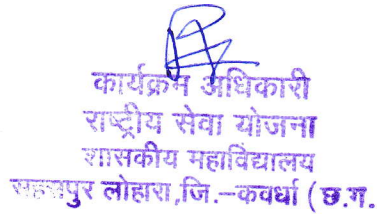 कार्यक्रम अधिकारी
राष्ट्रीय सेवा योजना
शासकीय महाविद्यालय
सहसपुर लोहारा,जि.–कवर्धा (छ.ग.